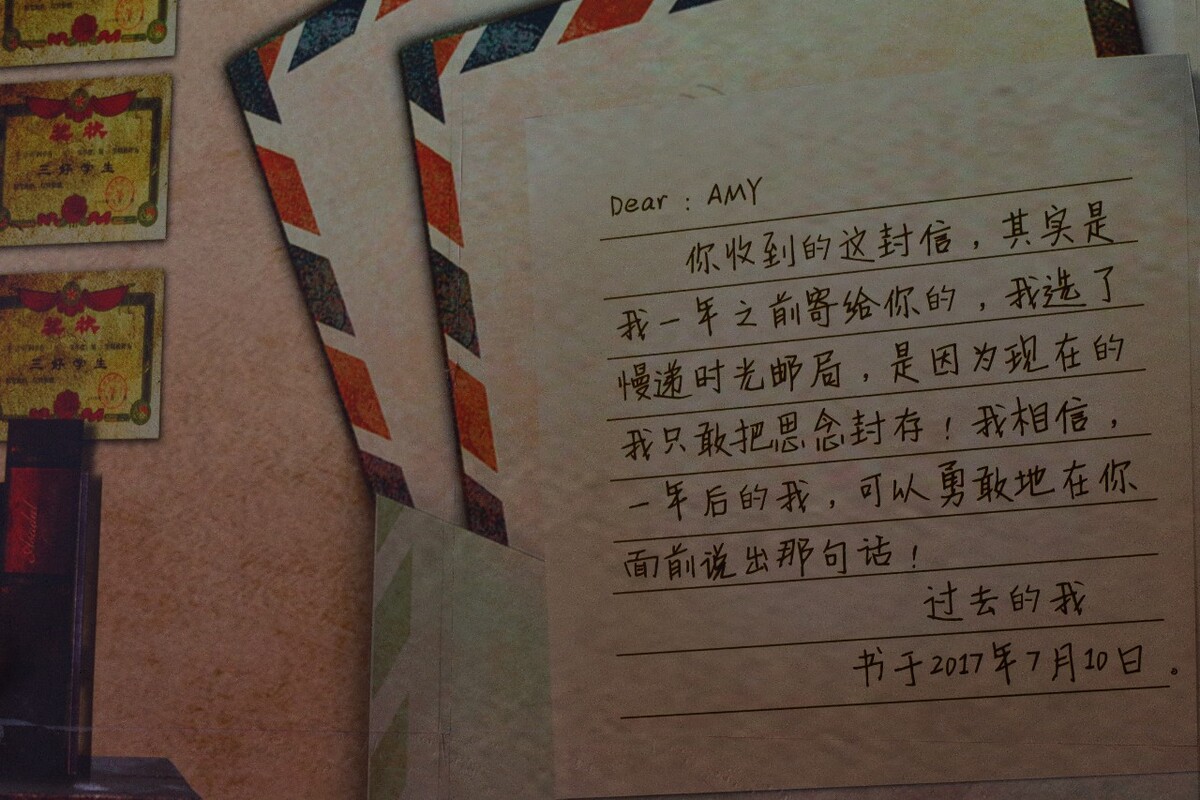 奖状
三好学生
奖状
三好学生
Dear：AMY
你收到的这封信，其实是
我一年之前寄给你的，我选了
慢递时光邮局，是因为现在的
我只敢把思念封存！我相信，
一年后的我，可以勇敢地在你
面前说出那句话！
过去的我
书于2017年7月10日。